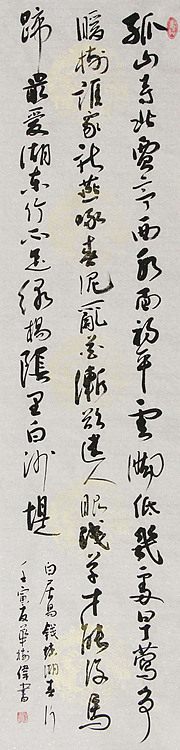 孤山寺北賈亭西水面初平雲腳低幾處早鶯爭
暖樹誰家新燕啄春泥亂花漸欲迷人眼淺草才能沒馬
蹄最愛湖東行不足綠楊陰里白沙堤
白居易錢塘湖春行
壬寅夏華樹偉書